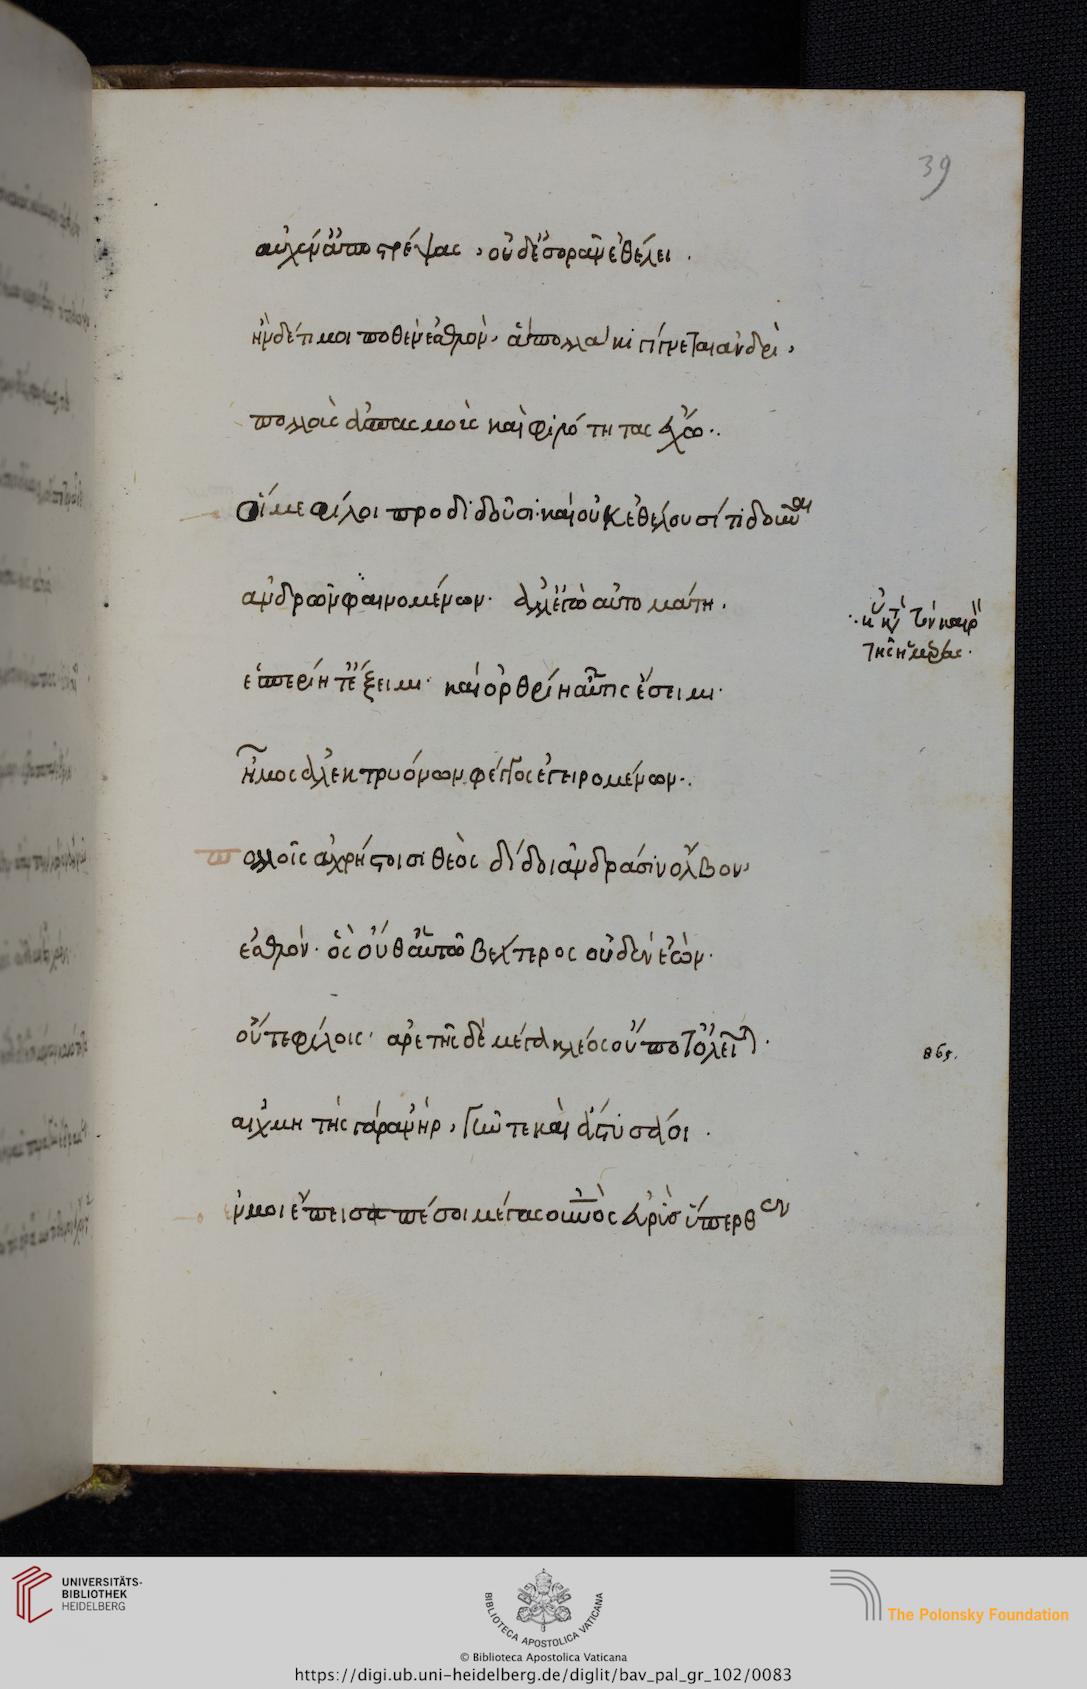 39
αὐχέν' ἀποστρέψας, οὐδ' ἐσορᾶν ἐθέλει.
ἢν δέ τί μοι ποθὲν ἐσθλὸν, ἃ πολλάκι γίγνεται ἀνδρὶ,
πολλοὺς ἀσπασμοὺς καὶ φιλότητας ἔχω.
Οἵ με φίλοι προδιδοῦσι· καὶ οὐκ ἐθέλουσί τι δοῦναι
ἀνδρῶν φαινομένων· ἀλλ' ἐγὼ αὐτομάτη.
ἑσπερίη τ' ἔξειμι· καὶ ὀρθρίη αὖτις ἔσειμι·
ἦμος ἀλεκτρυόνων φθόγγος ἐγειρομένων.
πολλοῖς ἀχρήστοισι θεὸς διδοῖ ἀνδράσιν ὄλβον,
ἐσθλόν· ὃς οὔθ' αὑτῷ βέλτερος οὐδὲν ἐὼν·
οὔτε φίλοις· ἀρετῆς δὲ μέγα κλέος οὔποτ' ὀλεῖται.
αἰχμητὴς γὰρ ἀνὴρ, γῆν τε καὶ ἄστυ σαοῖ.
ἔν μοι ἔπειτα πέσοι μέγας οὐρανὸς εὐρὺς ὕπερθεν
τῆς ἡμέρας.
865.
UNIVERSITÄTS-
BIBLIOTHEK
HEIDELBERG
BIBLIOTECA APOSTOLICA VATICANA
The Polonsky Foundation
© Biblioteca Apostolica Vaticana
https://digi.ub.uni-heidelberg.de/diglit/bav_pal_gr_102/0083